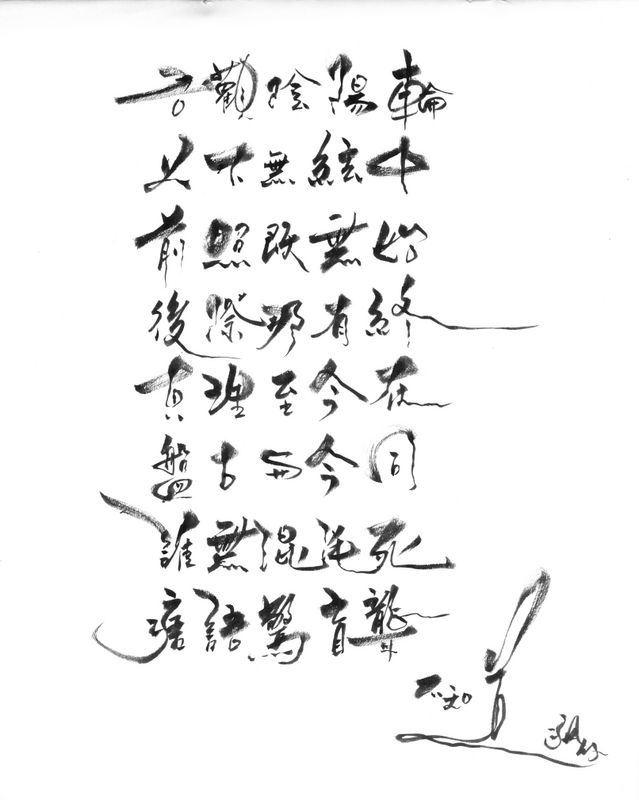 觀陰陽輪
下無絃中
前照既無始
後際那有終
真理至今在
盤古與今同
誰無混沌死
瘖語驚盲聾
不知道